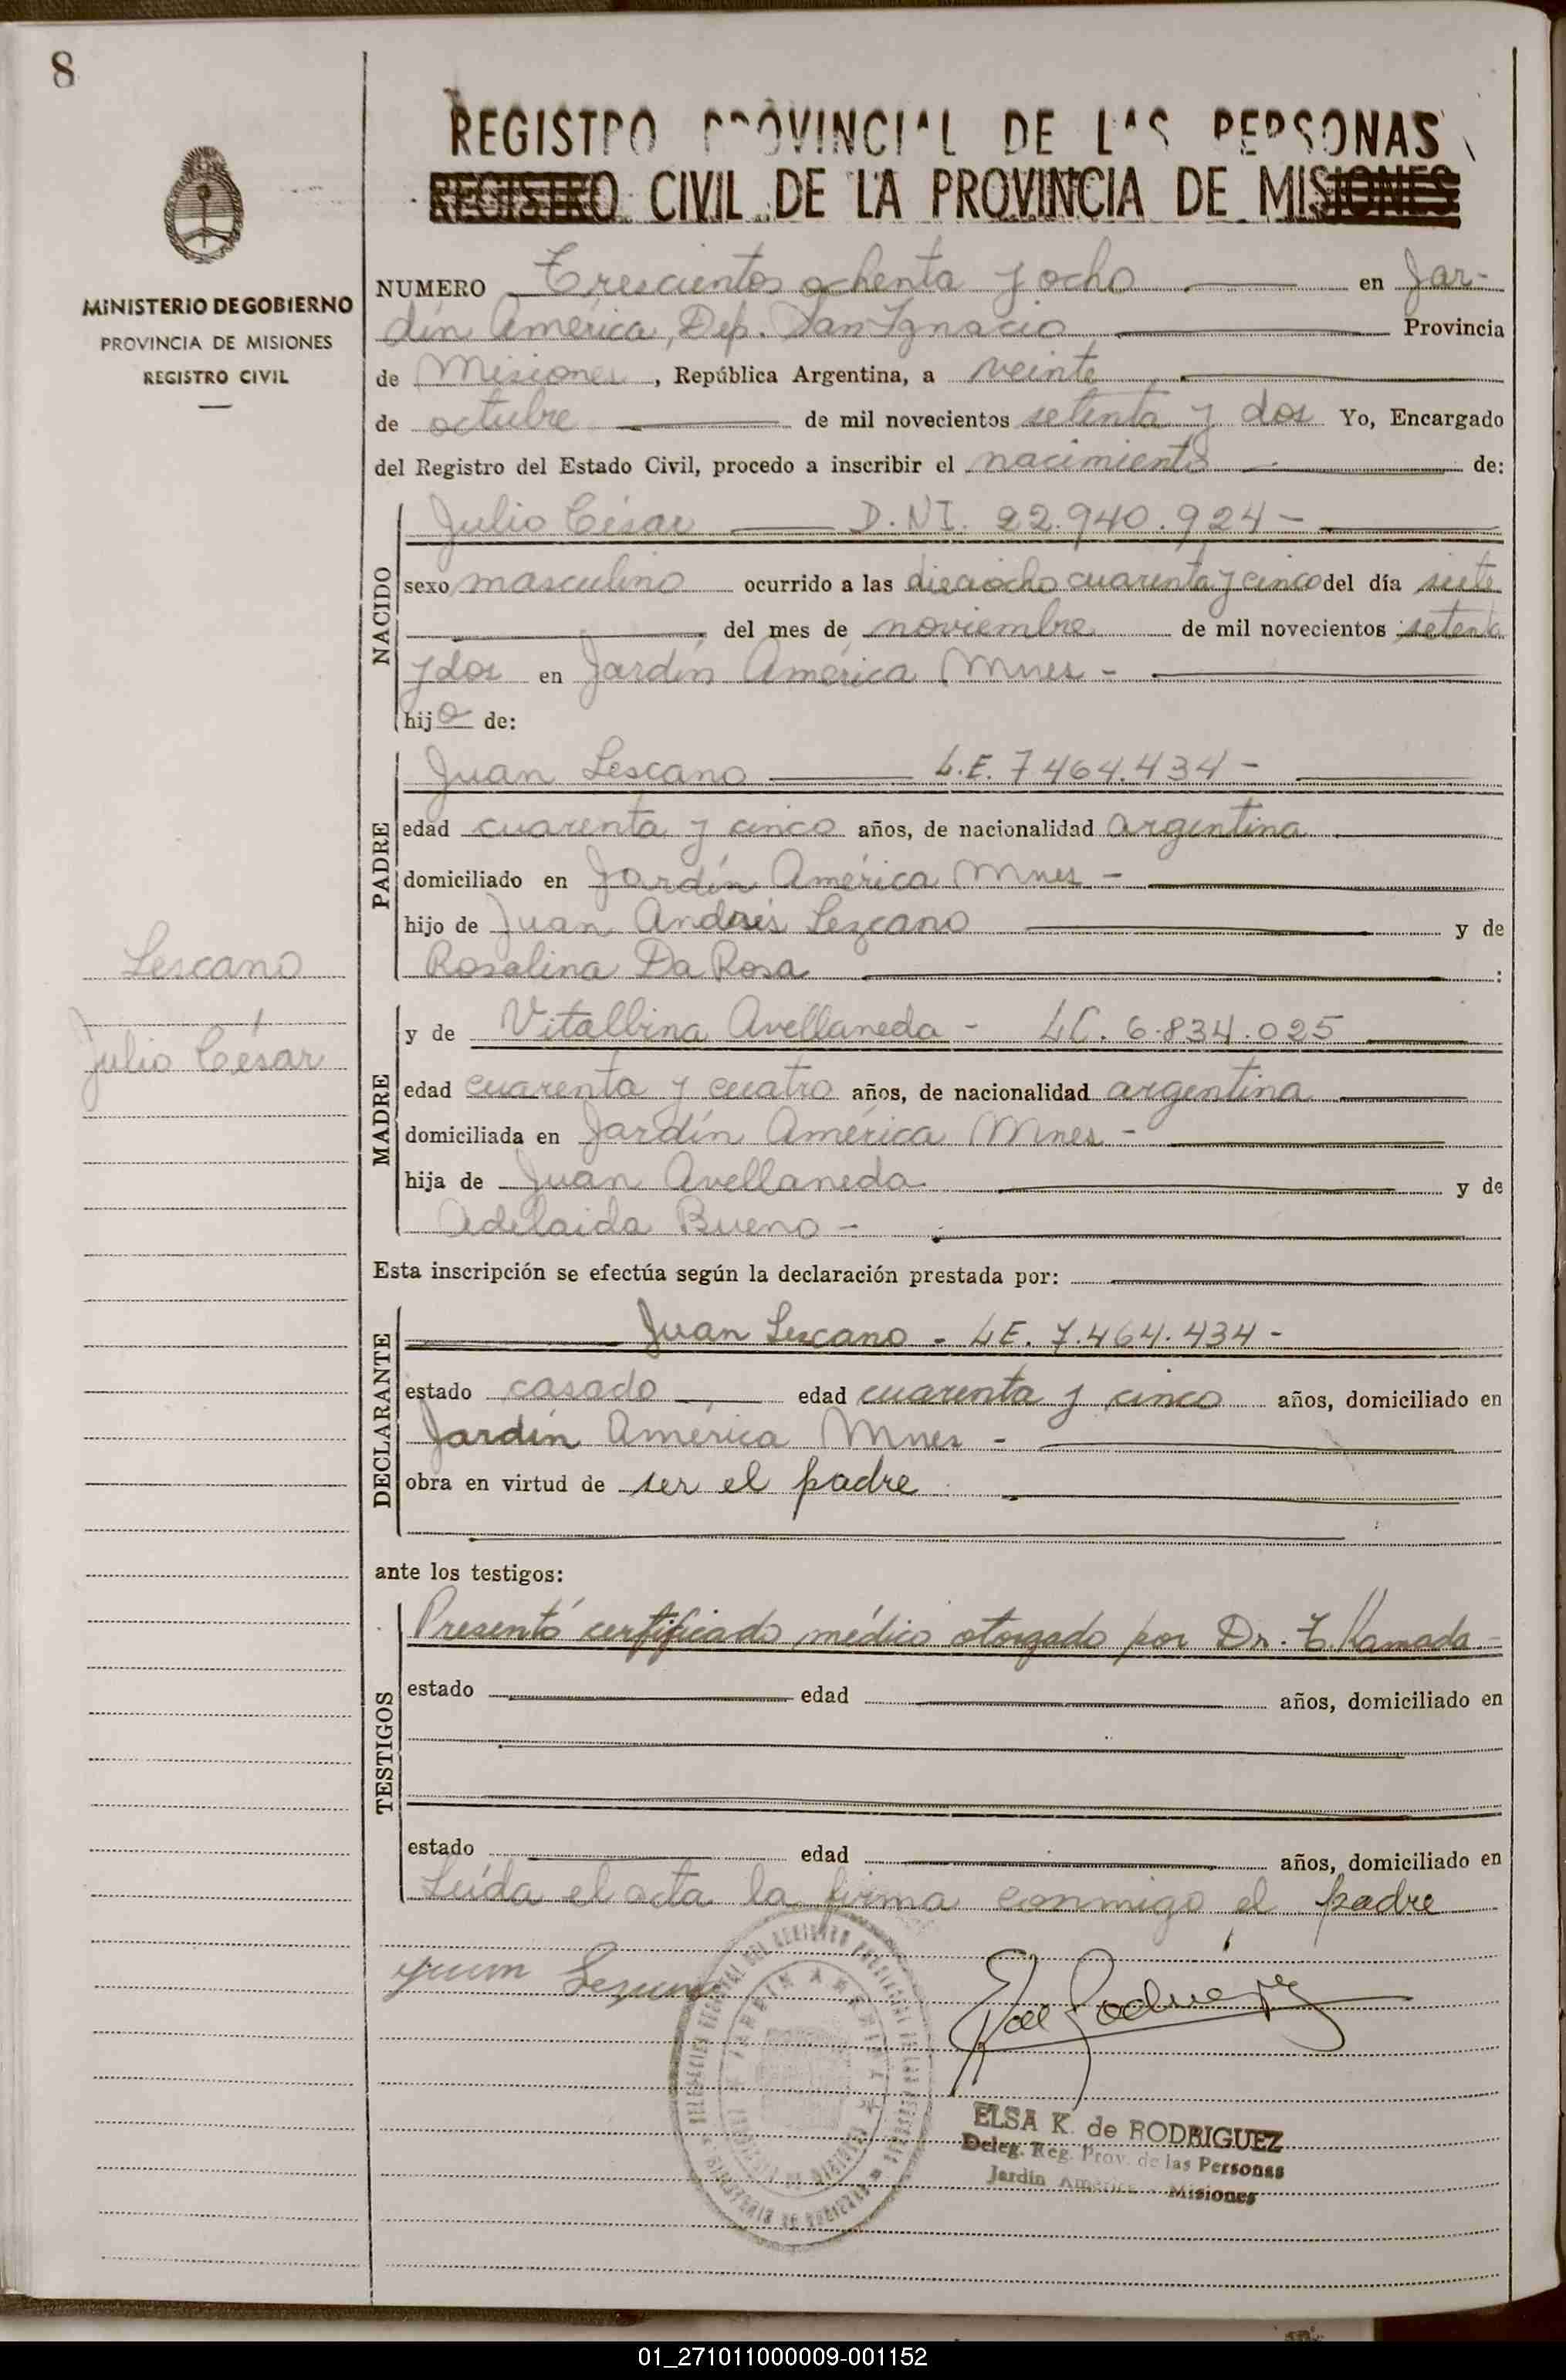 8
REGISTRO PROVINCIAL DE LAS PERSONAS
REGISTRO CIVIL DE LA PROVINCIA DE MISIONES
MINISTERIO DE GOBIERNO
PROVINCIA DE MISIONES
REGISTRO CIVIL
NUMERO Trescientos ochenta y ocho en Jar-
dín América, Dep. San Ignacio Provincia
de Misiones, República Argentina, a veinte
de octubre de mil novecientos setenta y dos Yo, Encargado
del Registro del Estado Civil, procedo a inscribir el nacimiento de:
NACIDO
Julio César D.NI. 22.940.924-
sexo masculino ocurrido a las dieciocho cuarenta y cinco del día siete
del mes de noviembre de mil novecientos setenta
y dos en Jardín América Mnes -
hijo de:
PADRE
Juan Lescano L.E. 7464.434-
edad cuarenta y cinco años, de nacionalidad argentina
domiciliado en Jardín América Mnes -
hijo de Juan Andrés Lezcano y de
Rosalina Da Rosa :
Lescano
Julio César
MADRE
y de Vitalbina Avellaneda - LC. 6.834.025
edad cuarenta y cuatro años, de nacionalidad argentina
domiciliada en Jardín América Mnes -
hija de Juan Avellaneda y de
Adelaida Bueno -
Esta inscripción se efectúa según la declaración prestada por:
DECLARANTE
Juan Lescano - LE. 7.464.434-
estado casado edad cuarenta y cinco años, domiciliado en
Jardín América Mnes -
obra en virtud de ser el padre
ante los testigos:
TESTIGOS
Presentó certificado médico otorgado por Dr. T. Kamada -
estado edad años, domiciliado en
estado edad años, domiciliado en
Leída el acta la firma conmigo el padre
Juan Lescano
ELSA K. de RODRIGUEZ
Deleg. Reg. Prov. de las Personas
Jardín América - Misiones
01_271011000009-001152